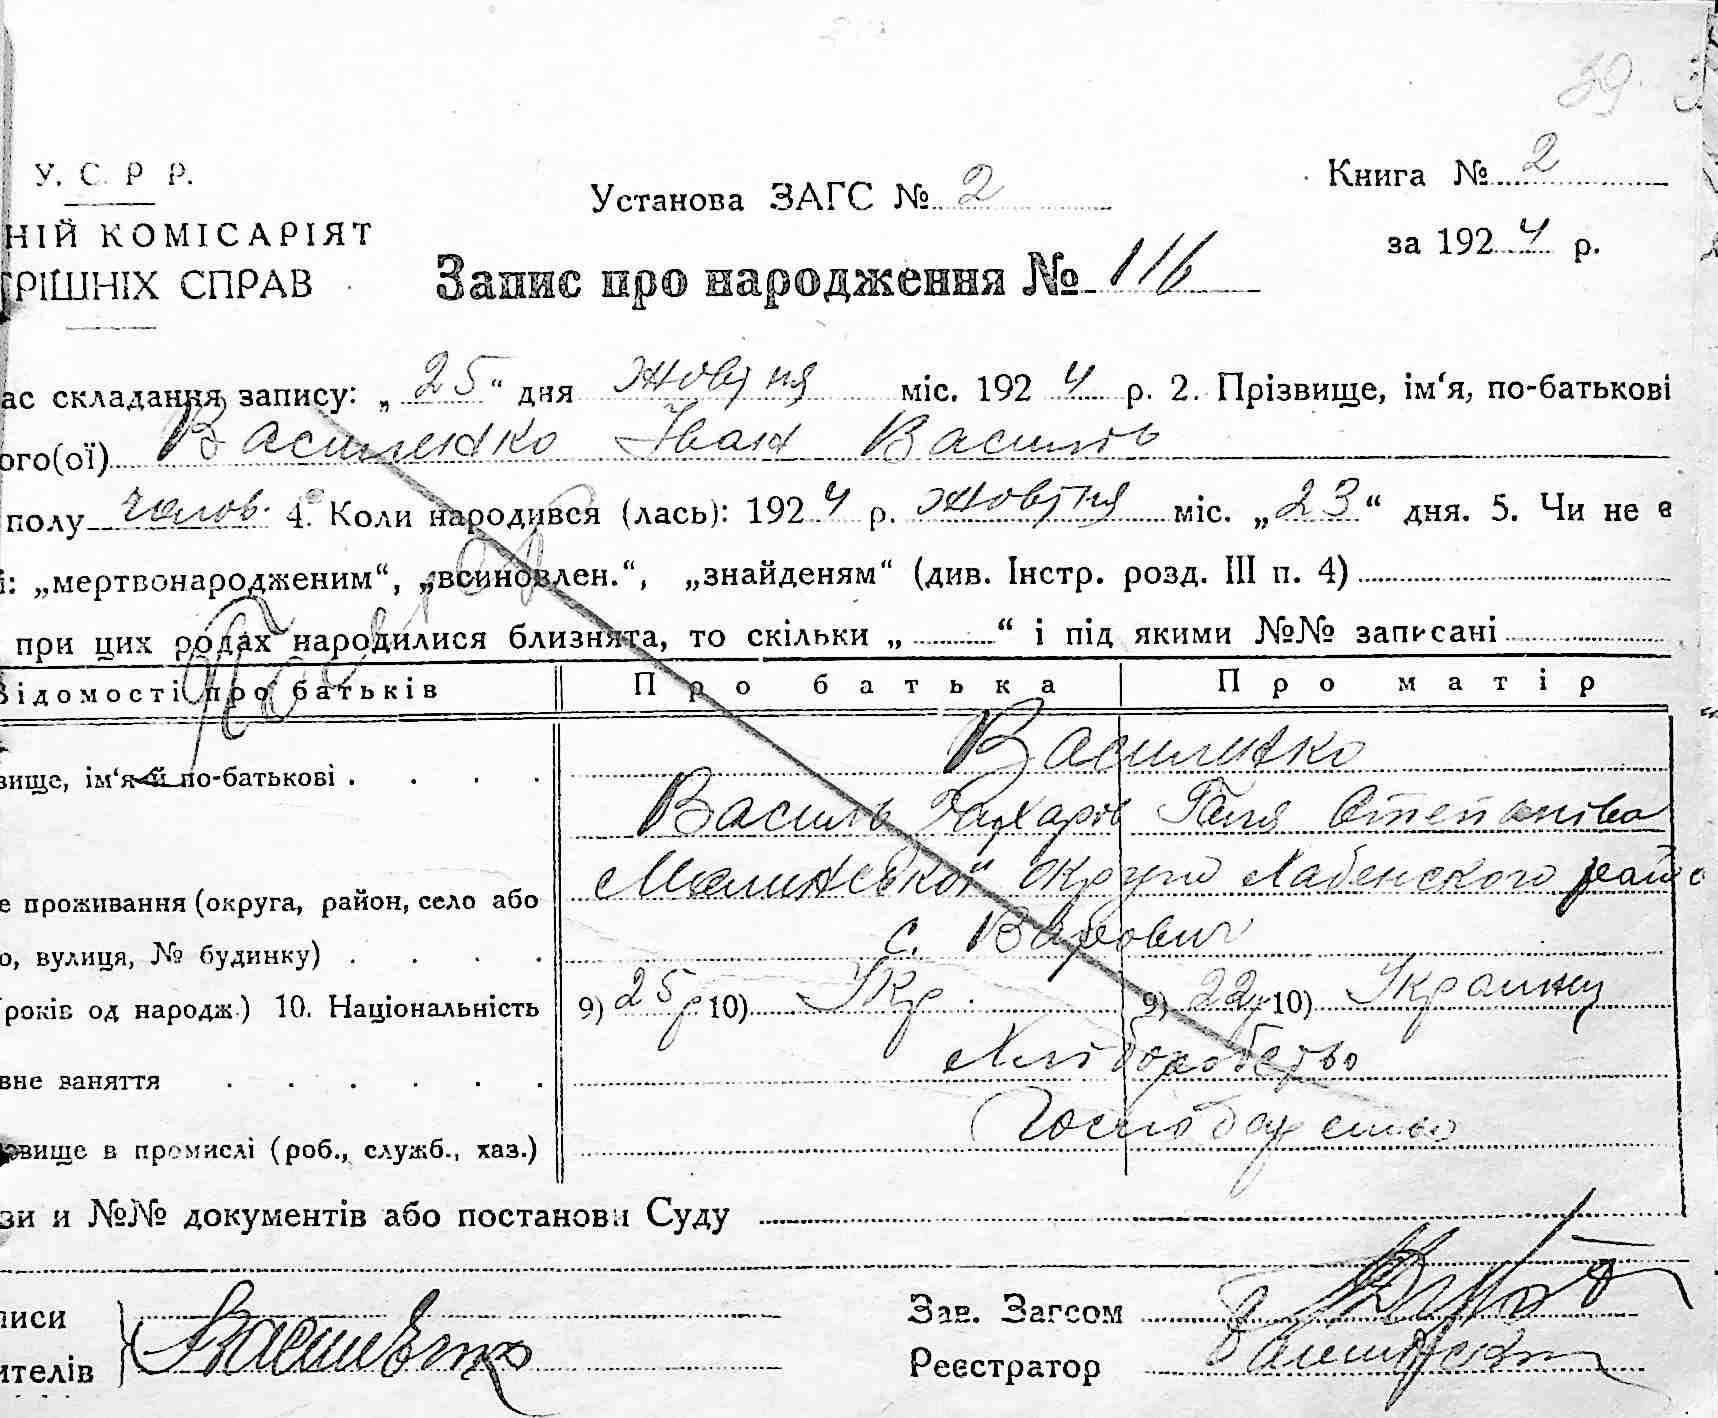 39
У. С. Р. Р.
Установа ЗАГС № 2
Книга № 2
НІЙ КОМІСАРІЯТ
за 1924 р.
ТРІШНІХ СПРАВ
Запис про народження № 116
ас складання запису: „25“ дня жовтня міс. 1924 р. 2. Прізвище, ім‘я, по-батькові
ого(ої) Василенко Іван Василів
полу челов. 4. Коли народився (лась): 1924 р. жовтня міс. „23“ дня. 5. Чи не є
і: „мертвонародженим“, „всиновлен.“, „знайденям“ (див. Інстр. розд. III п. 4)
при цих родах народилися близнята, то скільки „ “ і під якими №№ записані
Відомості про батьків Про батька Про матір
вище, ім‘я й по-батькові . . . . Василенко
Василь Захарів Галя Степанівна
е проживання (округа, район, село або Малинської округи Хабенского район
о, вулиця, № будинку) . . . . с. Варовичі
років од народж.) 10. Національність 9) 25 р 10) Укр. 9) 22 р 10) Украинц
вне заняття . . . . . . Хліборобство
овище в промислі (роб., служб., хаз.) Господарство
зи и №№ документів або постанови Суду
писи
Зав. Загсом
ителів Василенко
Реєстратор